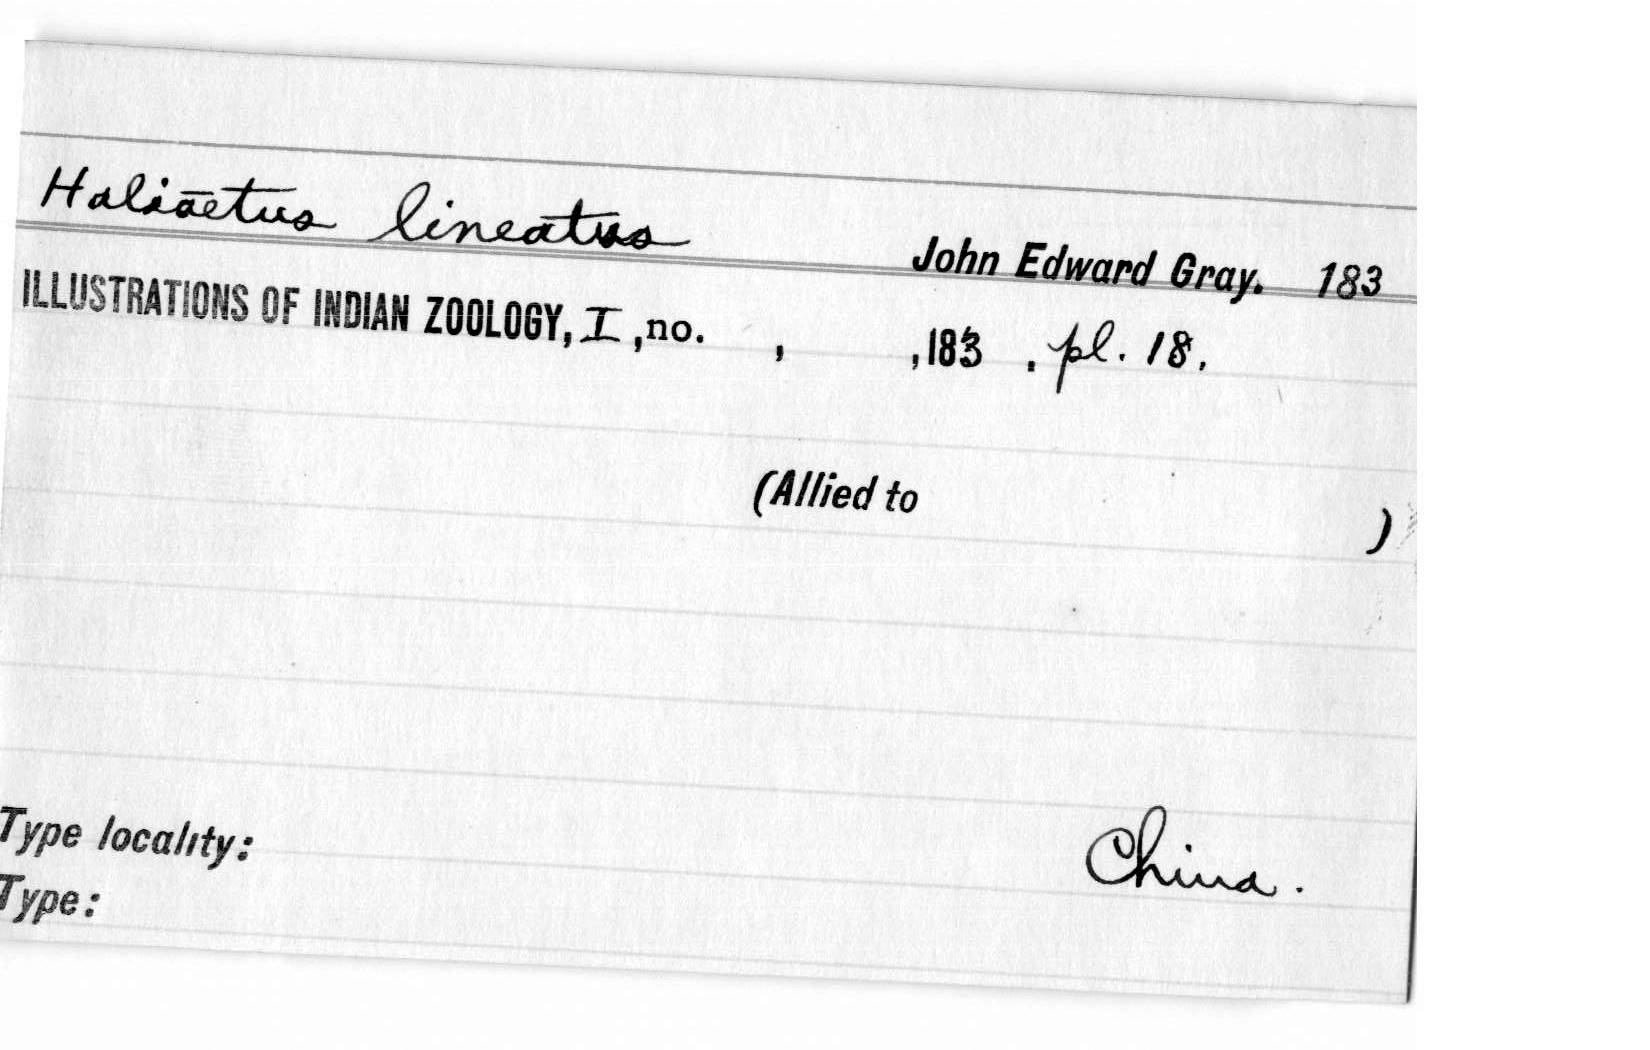 Haliaetus lineatus
John Edward Gray. 183
ILLUSTRATIONS OF INDIAN ZOOLOGY, I, no. , ,183 . pl. 18.
(Allied to )
China.
Type locality:
Type: